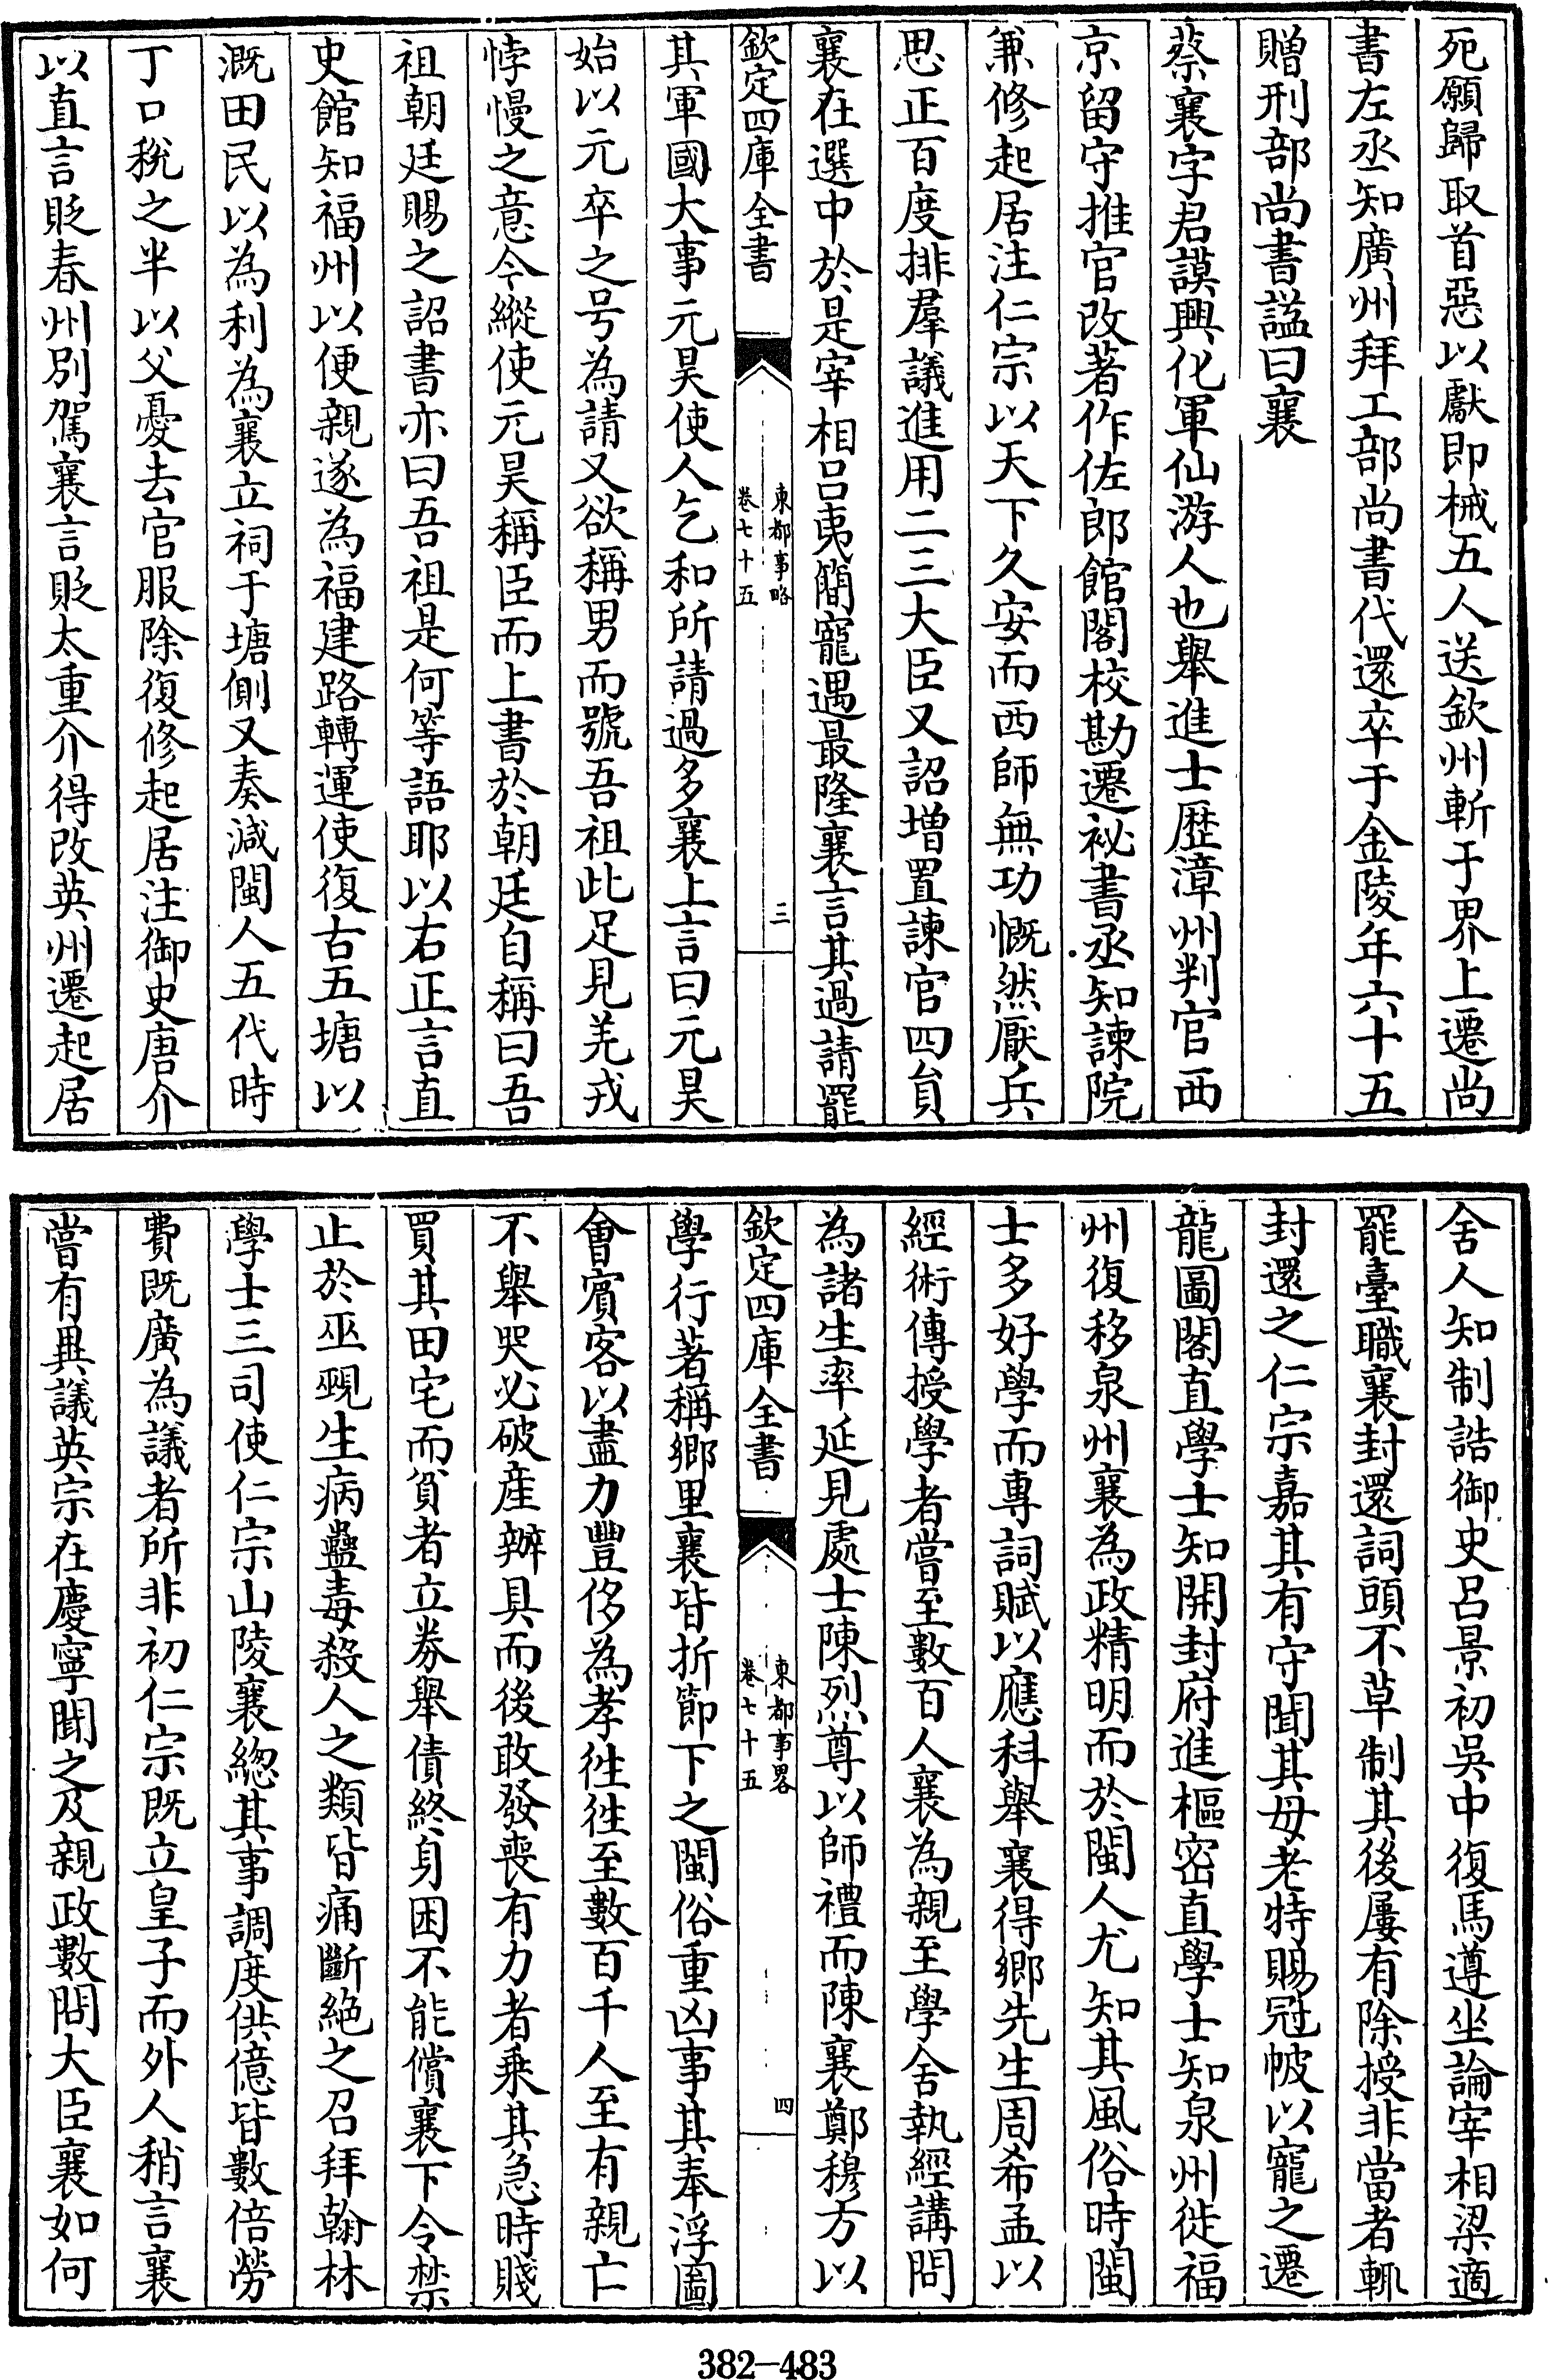 死願歸取首惡以獻即械五人送欽州斬于界上遷尚
書左丞知廣州拜工部尚書代還卒于金陵年六十五
贈刑部尚書謚曰襄
蔡襄字君謨興化軍仙游人也舉進士歴漳州判官西
京留守推官改著作佐郎館閣校勘遷祕書丞知諫院
兼修起居注仁宗以天下久安而西師無功慨然厭兵
思正百度排羣議進用二三大臣又詔増置諫官四員
襄在選中於是宰相吕夷簡寵遇最隆襄言其過請罷
欽定四庫全書
東都事略
卷七十五
三
其軍國大事元昊使人乞和所請過多襄上言曰元昊
始以元卒之号為請又欲稱男而號吾祖此足見羌戎
悖慢之意今縱使元昊稱臣而上書於朝廷自稱曰吾
祖朝廷賜之詔書亦曰吾祖是何等語耶以右正言直
史館知福州以便親遂為福建路轉運使復古五塘以
溉田民以為利為襄立祠于塘側又奏減閩人五代時
丁口稅之半以父憂去官服除復修起居注御史唐介
以直言貶春州別駕襄言貶太重介得改英州遷起居
舍人知制誥御史吕景初吳中復馬遵坐論宰相梁適
罷臺職襄封還詞頭不草制其後屢有除授非當者輒
封還之仁宗嘉其有守聞其母老特賜冠帔以寵之遷
龍圖閣直學士知開封府進樞密直學士知泉州徙福
州復移泉州襄為政精明而於閩人尤知其風俗時閩
士多好學而專詞賦以應科舉襄得鄉先生周希孟以
經術傳授學者嘗至數百人襄為親至學舍執經講問
為諸生率延見處士陳烈尊以師禮而陳襄鄭穆方以
欽定四庫全書
東都事畧
卷七十五
四
學行著稱鄉里襄皆折節下之閩俗重凶事其奉浮圖
會賓客以盡力豐侈為孝徃徃至數百千人至有親亡
不舉哭必破產辦具而後敢發喪有力者乘其急時賤
買其田宅而貧者立券舉債終身困不能償襄下令禁
止於巫覡生病蠱毒殺人之類皆痛斷絶之召拜翰林
學士三司使仁宗山陵襄總其事調度供億皆數倍勞
費既廣為議者所非初仁宗既立皇子而外人稍言襄
嘗有異議英宗在慶寧聞之及親政數問大臣襄如何
382-483